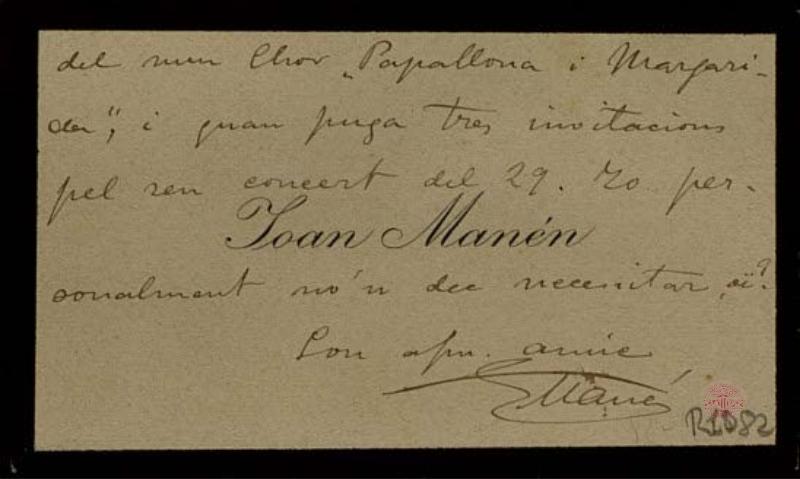 del meu Chor „Papallona i Margari-
da", i quan puga tres invitacions
pel seu concert del 29. Jo per-
Joan Manén
sonalment no'n dec necesitar, oi?
Son afm. amic
JManén
R1082